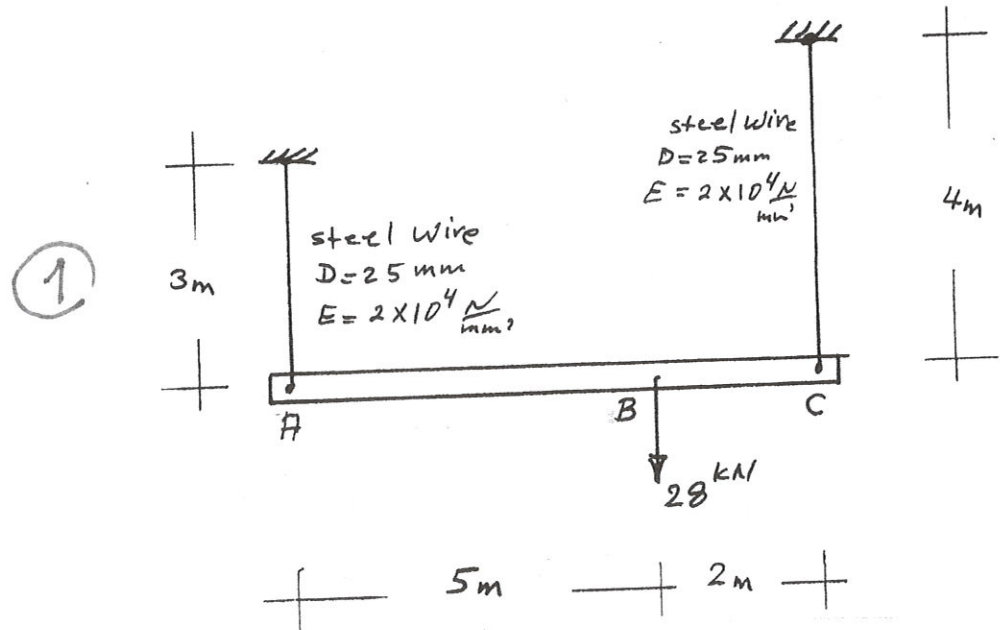 steel wire
D=25mm
E = 2×10⁴ N/mm²
4m
steel wire
D=25 mm
E= 2×10⁴ N/mm²
1
3m
A
B
C
28 kN
5m
2m